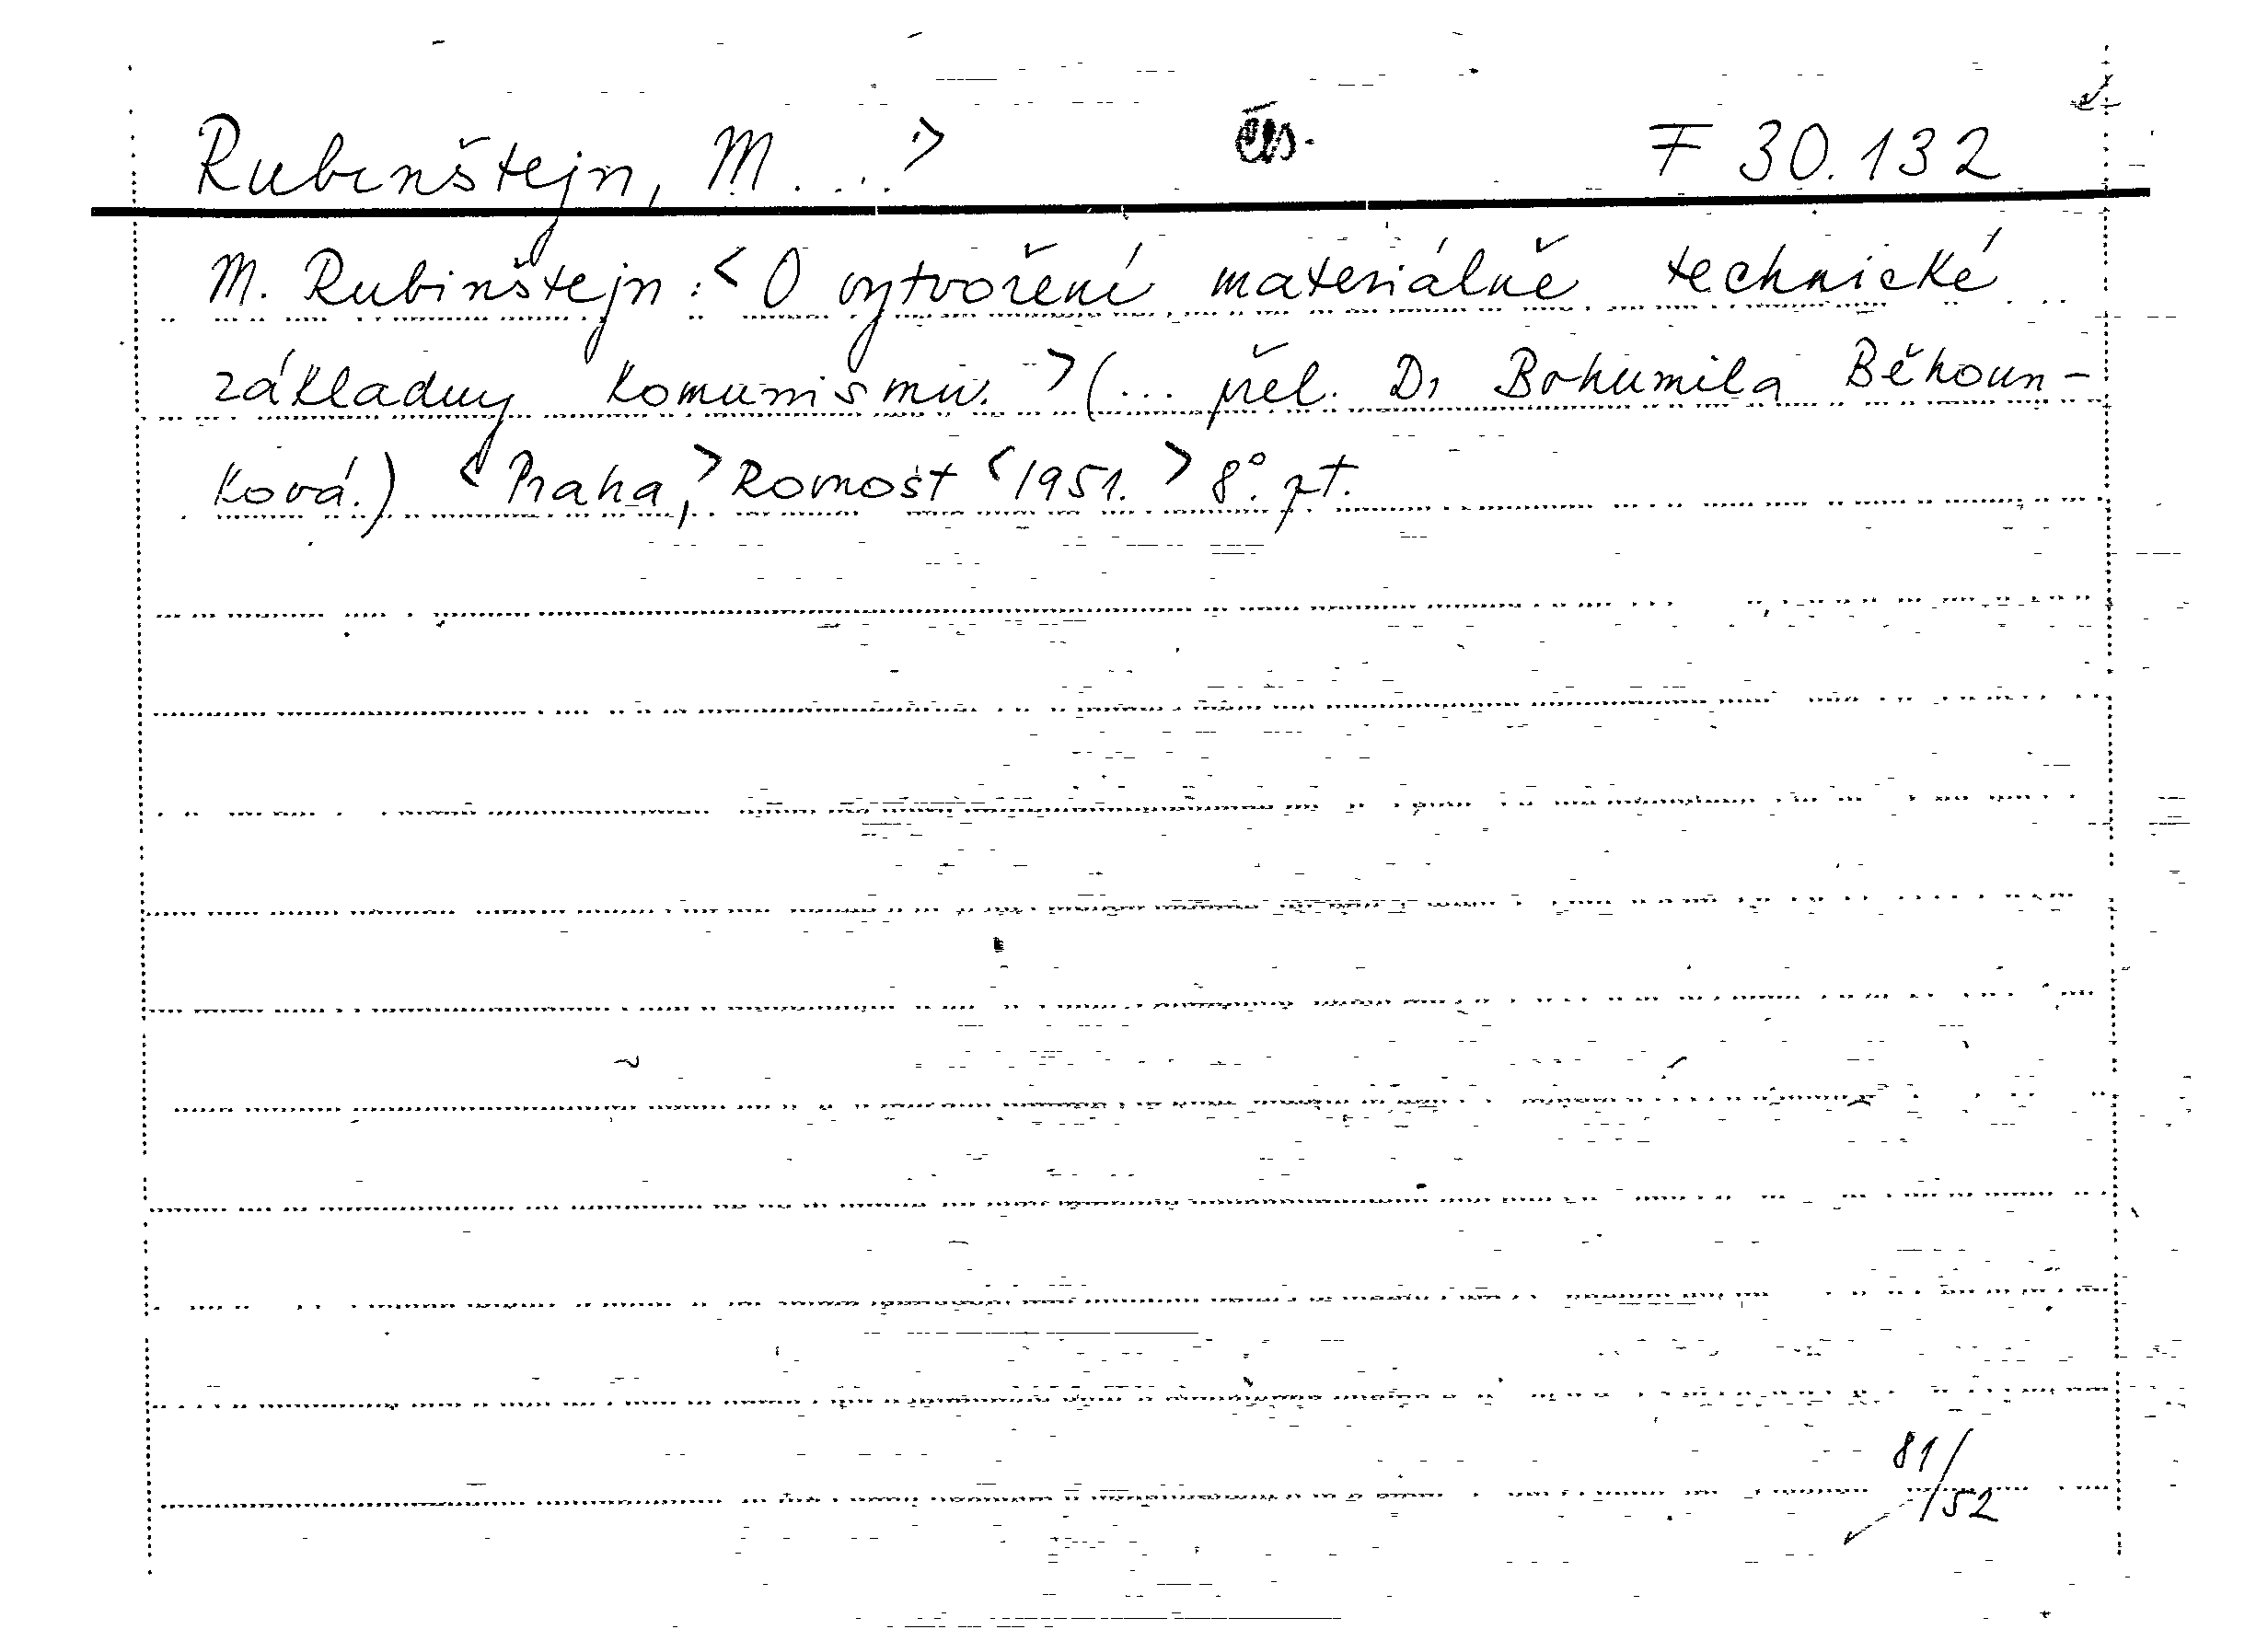 Rubinštejn, M. ...> čes. F 30.132
M. Rubinštejn: <O vytvoření materiálně technické
základny komunismu.> (... přel. Dr Bohumila Běhoun-
ková.) <Praha,> Rovnost <1951.> 8°. pt.
81/52